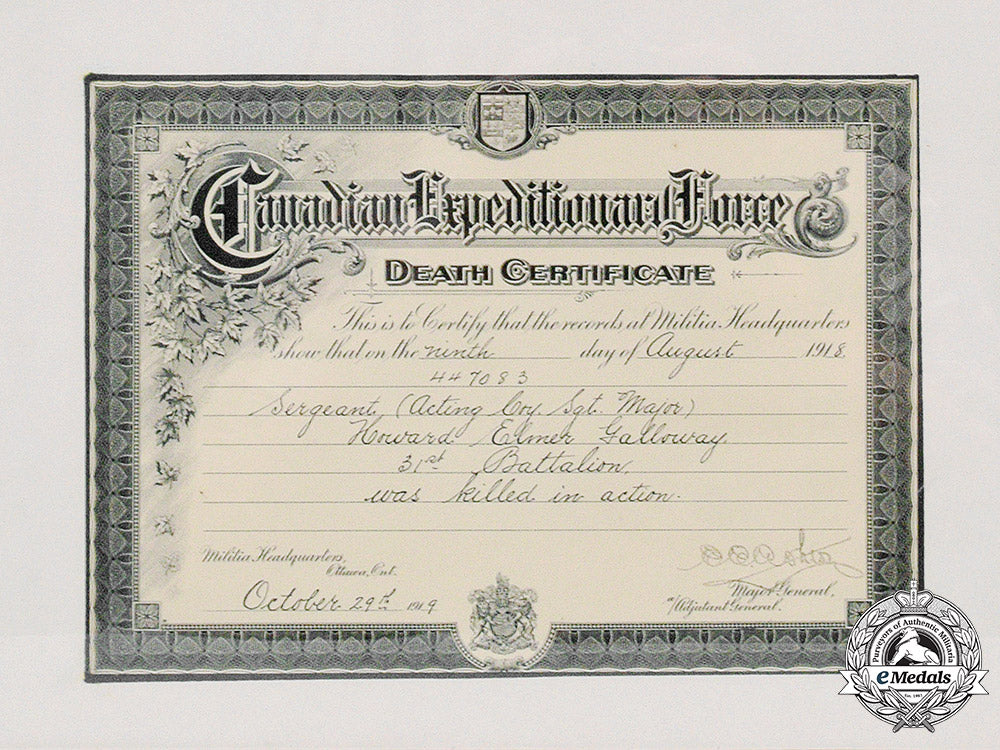 Canadian Expeditionary Force
DEATH CERTIFICATE
This is to Certify that the records at Militia Headquarters
show that on the ninth day of August 1918
447083
Sergeant, (Acting Coy. Sgt. Major)
Howard Elmer Galloway
31st Battalion,
was killed in action.
Militia Headquarters,
Ottawa, Ont.
October 29th 1919
Major General,
Adjutant General.
Purveyors of Authentic Militaria
eMedals